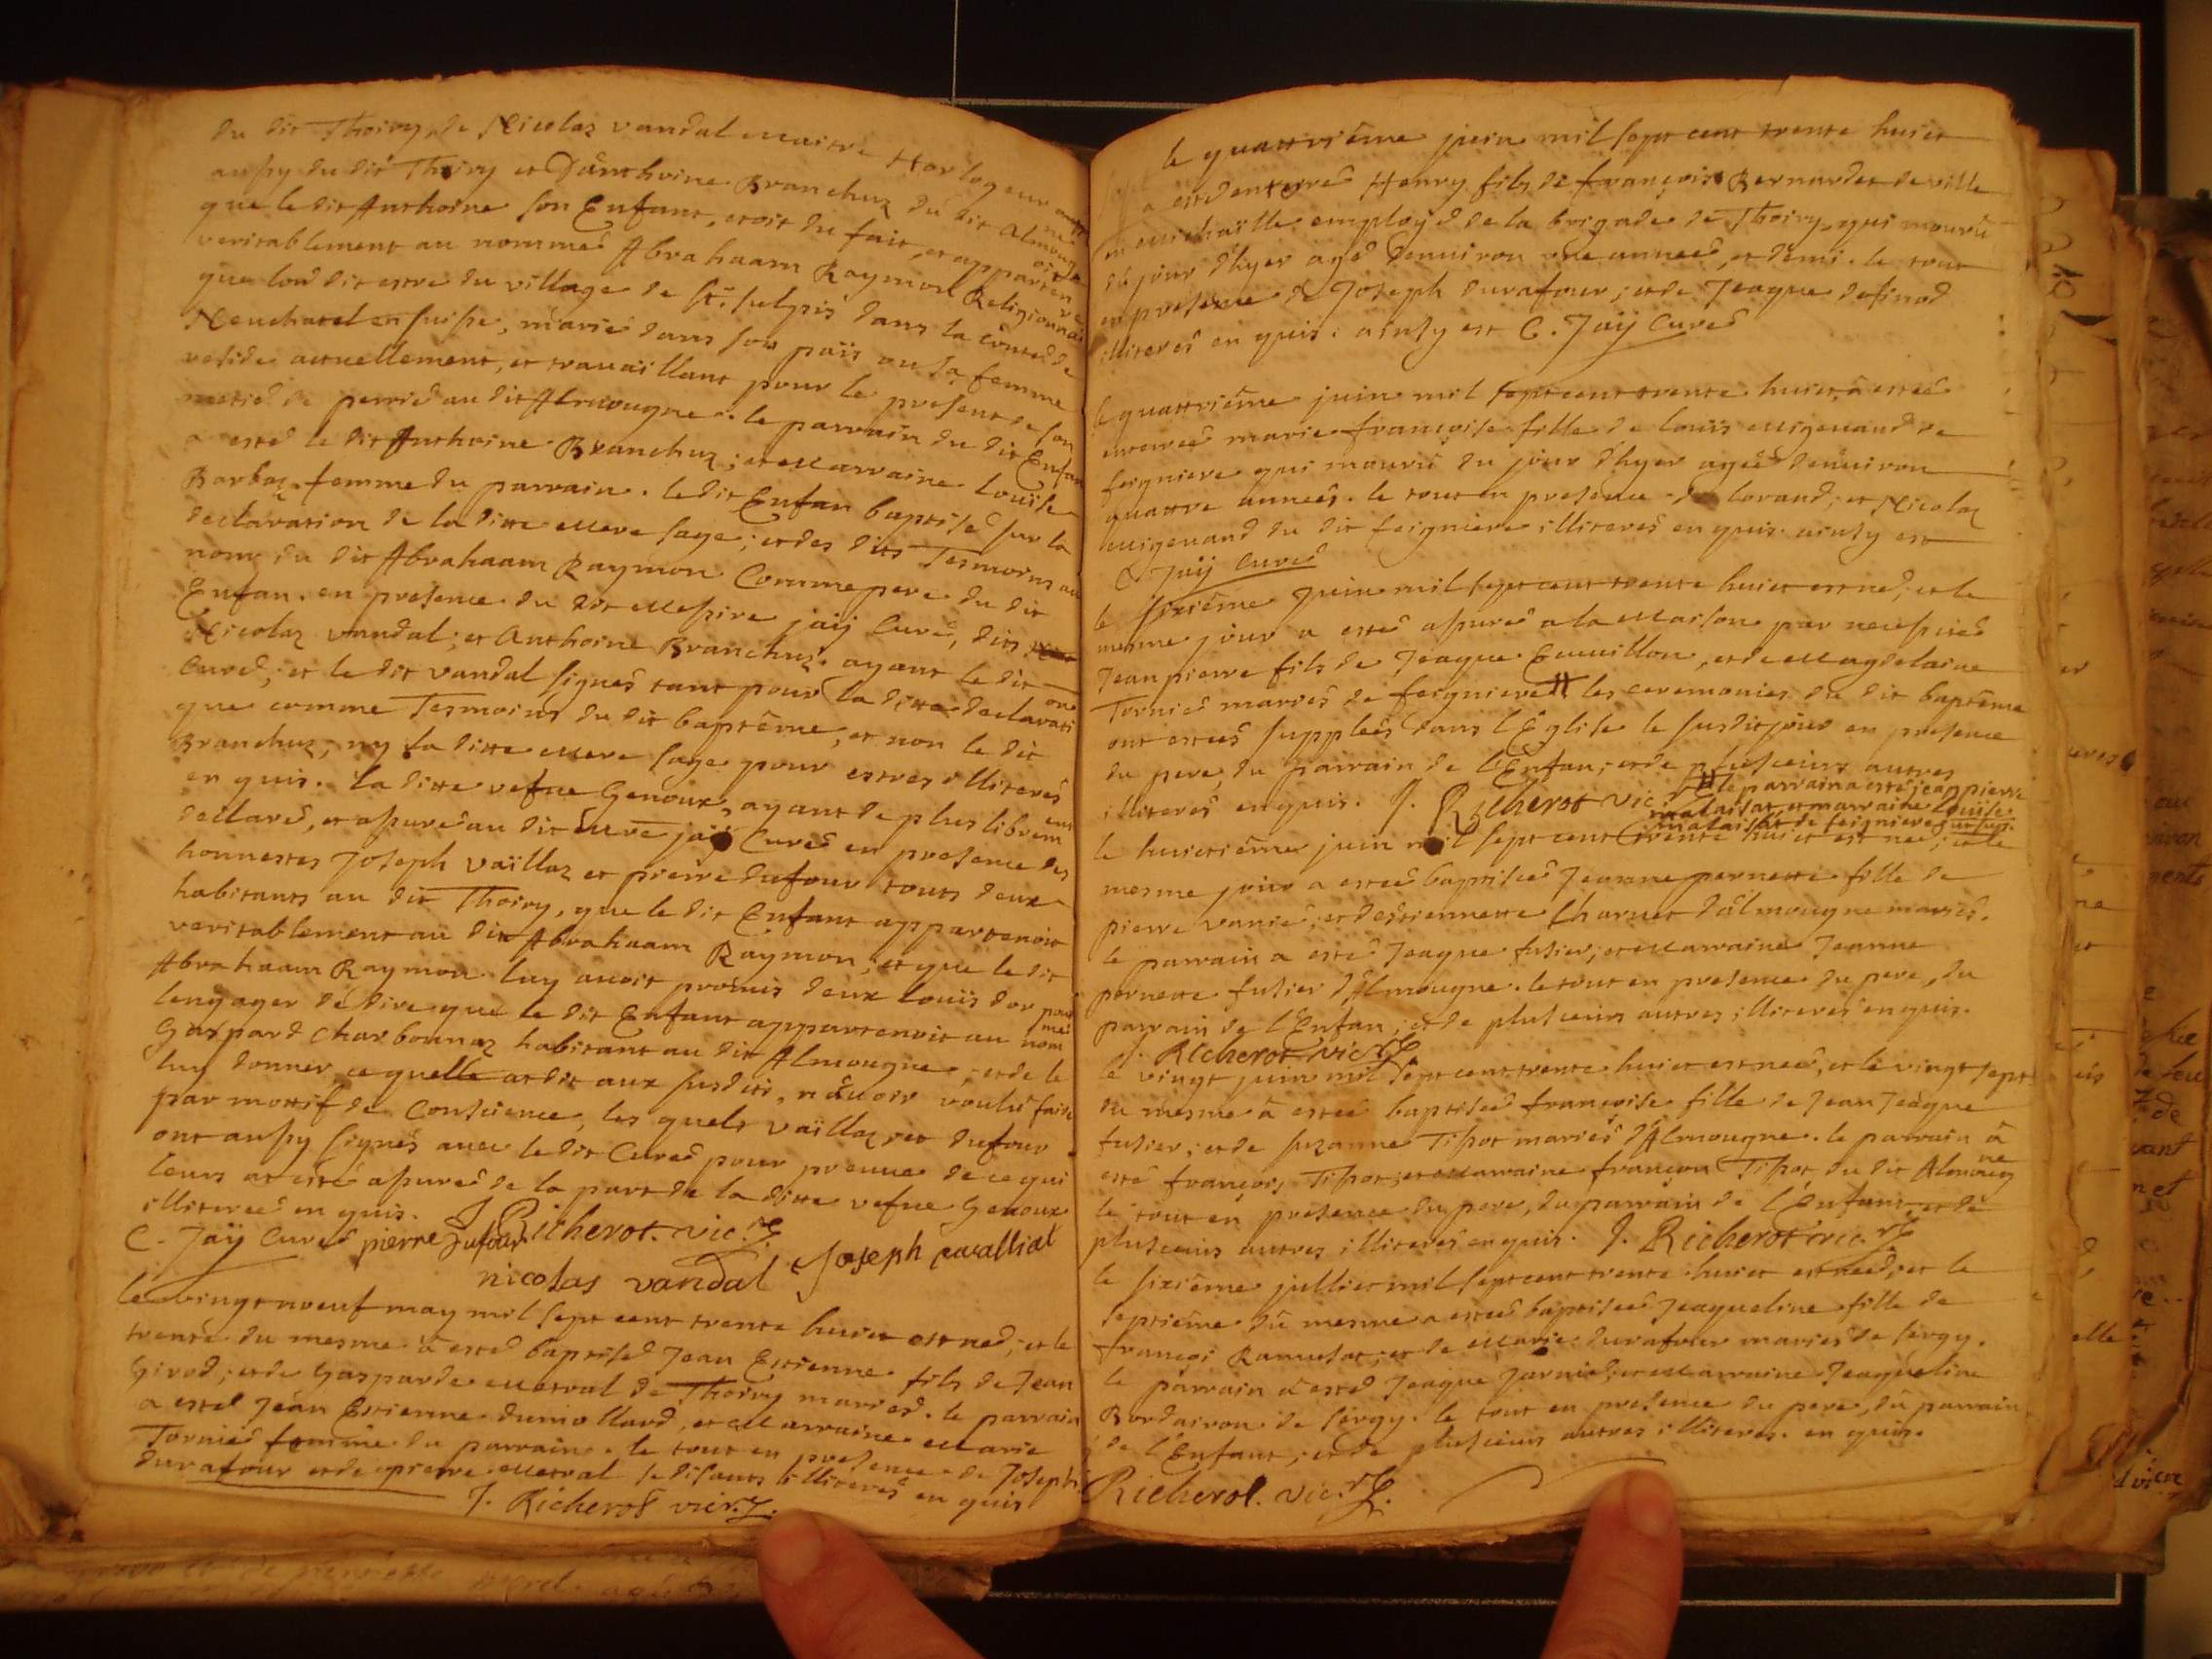 du dit Thoiry, de Nicolaz vandal maitre Horlogeur
aussy du dit Thoiry et Danthoine Branchuz du dit Almougne
que le dit Anthoine son Enfant, etoit du fait, et appartenoit
veritablement au nommé Abrahaam Raymon Religionnaire
que lon dit estre du village de St. sulpis dans la comté de
Neuchatel en suisse, marié dans son païs ou sa femme
reside actuellement, et travaillant pour le present de son
metié de au dit Almougne. le parrain du dit Enfan
a esté le dit Anthoine Branchuz; et marraine Louïse
Barbaz femme du parrain. le dit Enfan baptisé sur la
declaration de la ditte mere sage; et des dits Tesmoins au
nom du dit Abrahaam Raymon Comme pere du dit
Enfan. en presence du dit messire jaÿ Curé, dits
Nicolaz vandal; et Anthoine Branchuz. ayant le dit
Curé; et le dit vandal signés tant pour la ditte declaration
que comme Tesmoins du dit baptême, et non le dit
Branchuz; ny la ditte mere sage pour estres illiterés
en quis. la ditte vefue Genoux, ayant de plus librement
declaré, et assuré au dit jaÿ Curé en presence des
honnestes Joseph vaïllaz et pierre dufour touts deux
habitants au dit Thoiry, que le dit Enfant appartenoit
veritablement au dit Abrahaam Raymon, et que le dit
Abrahaam Raymon luy avoit promis deux louïs dor pour
lengager de dire que le dit Enfant appartenoit au nommé
Gaspard Charbonnaz habitant au dit Almougne, et de le
luy donner, ce quelle at dit aux susdits, navoir voulu faire
par mottif de Conscience, les quels vaïllaz, et dufour
ont aussy signés avec le dit Curé pour preuve de ce qui
leurs at esté assuré de la part de la ditte vefue Genoux
illiterée en quis. J Richerot. vic.re
C. Jaÿ Curé pierre Dufour
nicolas vandal Joseph
le vingt neuf may mil sept cent trente huict est né; et le
trente du mesme a esté baptisé Jean Estienne fils de Jean
Girod; et de Gasparde mestral de Thoiry mariés. le parrain
a esté Jean Estienne dumollard, et Marraine marie
Tornié femme du parrain. le tout en presence de Joseph
durafour et de pierre mestral se disants illiterés en quis
J. Richerot vic.re
le quattriême juin mil sept cent trente huict
a esté enterré Henry fils de françois Bernardet de ville
en michaïlle employé de la brigade de Thoiry, qui mourû
du jour d'hyer agé denuiron une année, et demi. le tout
en presence de Joseph durafour; et de Jeaque
illiterés en quis. ainsy est C. Jaÿ Curé
le quattriême juin mil sept cent trente huict a estée
enterrée marie françoise fille de louïs migeuand de
feigniere qui mourû du jour d'hyer agée denuiron
quattre années. le tout en presence de lorand; et Nicolaz
migeuand du dit feigniere illiterés en quis. ainsy est
C Jaÿ Curé
le sixiême juin mil sept cent trente huict est né; et le
mesme jour a esté a la Maison par necessité
Jean pierre fils de Jeaque Emuillon, et de magdelaine
Tornié mariés de feigniere # les ceremonies du dit baptême
ont estées suppleés dans l'Eglise le susdit jour en presence
du pere, du parrain de l'Enfan; et de plusieurs autres
illiterés en quis. J. Richerot vic.re # le parrain a esté jean pierre
malaisat, et marraine louïse
malaisat de feigniere
le huictiême juin mil sept cent trente huict est née; et le
mesme jour a estée baptisée Jeanne pernette fille de
pierre vanié; et destiennette Charuet dalmougne mariés.
le parrain a esté Jeaque fusier; et marraine Jeanne
pernette fusier dAlmougne. le tout en presence du pere, du
parrain de l'Enfan; et de plusieurs autres illiterés en quis.
J. Richerot vic.re
le vingt juin mil sept cent trente huict est née, et le vingt sept
du mesme a estée baptisée françoise fille de Jean Jeaque
fusier; et de suzanne Tissot mariés dAlmougne. le parrain a
esté françois Tissot; et marraine Tissot, du dit Almougne
le tout en presence du pere, du parrain de l'Enfant et de
plusieurs autres illiterés en quis. J. Richerot vic.re
le sixiême julliet mil sept cent trente huict est née; et le
septiême du mesme a estée baptisée Jeaqueline fille de
françoi Ramusat; et de Marie durafour mariés de sergy.
le parrain a esté Jeaque Jarnié; et marraine Jeaqueline
Bordairon de sergy. le tout en presence du pere, du parrain
de l'Enfant; et de plusieurs autres illiterés. en quis.
Richerot. vic.re